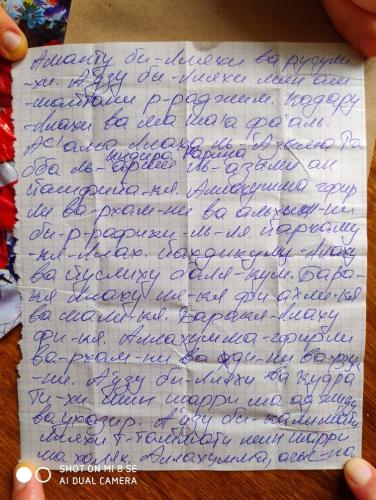 Аманту би-Лляхи ва русули
-хи. А'узу би-Лляхи мин аш
-шайтани р-раджим. Кадару
-Ллахи ва ма ша'а фа'аль.
Ас'алю Ллаха ль-'Азыма Ра
бба ль-'арши ль-'азыми ан
йашфийа-кя. Аллахумма гфир
ли ва-рхам-ни ва альхыкъ-ни
би-р-рафикы-ль-'ля. Йархаму
-кя-Ллах. Йахдикуму Ллаху
ва йуслиху баля-кум. Бара-
кя Ллаху ля-кя фи ахли-кя
ва мали-кя. Баракя-Ллаху
фи-кя. Аллахумма-гфирли
ва-рхам-ни ва хди-ни ва-рзук
-ни. А'узу би-Лляхи ва кудра
ти-хи мин шарри ма аджиду
ва ухазир. А'узу би-калимати
Лляхи т-таммати мин шарри
ма халяк. Аллахумма,
SHOT ON MI 8 SE
AI DUAL CAMERA